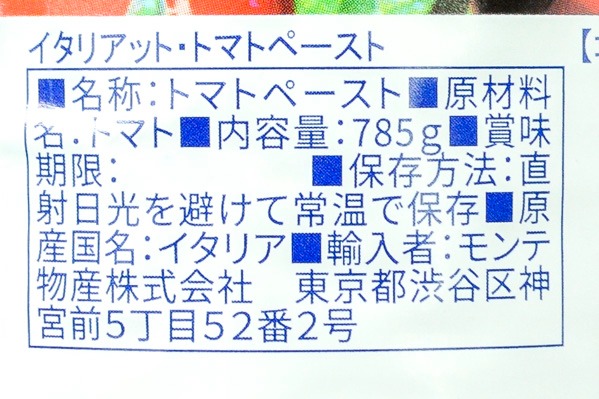 イタリアット・トマトペースト
■名称：トマトペースト■原材料
名．トマト■内容量：785g■賞味
期限： ■保存方法：直
射日光を避けて常温で保存■原
産国名：イタリア■輸入者：モンテ
物産株式会社　東京都渋谷区神
宮前5丁目52番2号